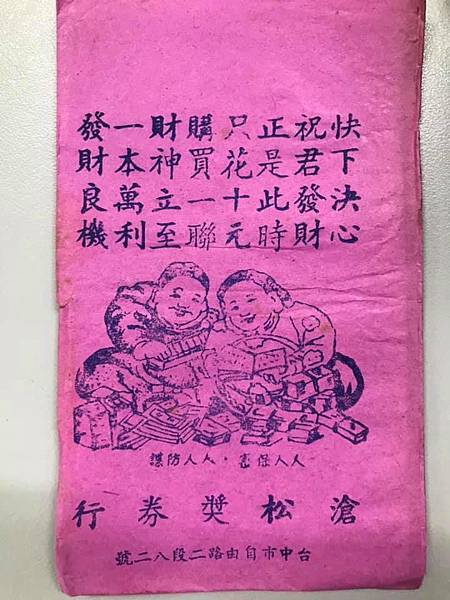 快下決心
祝君發財
正是此時
只花十元
購買一聯
財神立至
一本萬利
發財良機
人人保密・人人防諜
滄松奬券行
台中市自由路二段八二號